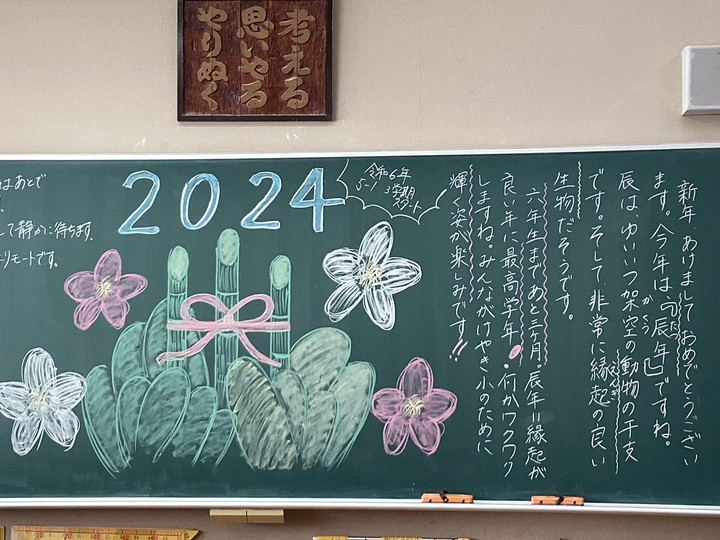 考える
思いやる
やりぬく
はあとで
して静かに待ちます。
リモートです。
2024
令和6年
5-1 3学期
スタート
新年、あけましておめでとうござい
ます。今年は、「辰年」ですね。
たつどし
辰は、ゆいいつ架空の動物の干支
かくう
です。そして、非常に縁起の良い
えんぎ
生物だそうです。
六年生まであと三ケ月。辰年=縁起が
良い年に最高学年。何かワクワク
しますね。みんながけやき小のために
輝く姿が楽しみです!!